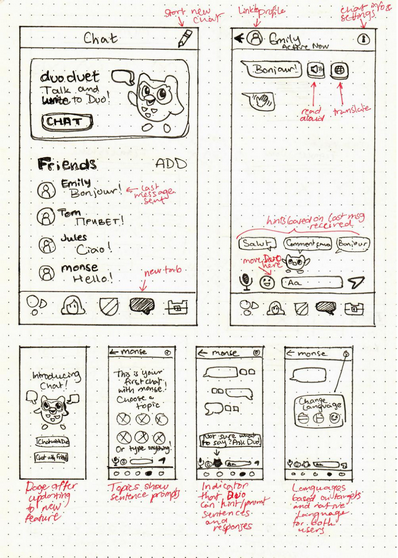 start new
chat
Chat
duo duet
Talk and
write to Duo!
CHAT
Friends
ADD
Emily
Bonjour!
last
message
sent
Tom
Привет!
Jules
Ciao!
monse
Hello!
new tab
link to profile
chat info &
settings
Emily
Active Now
Bonjour!
read
aloud
translate
hints based on last msg
received
Salut
Comment
Bonjour
more Duo
here
Aa
Introducing
Chat!
Chat with Duo
Chat with Friends
Page after
updating
to new
feature
monse
This is your
first chat
with monse.
Choose a
topic
Or type anything!
Topics show
sentence prompts
monse
Not sure what
to say? Ask Duo!
Indicator
that Duo
can hint/prompt
sentences
and
responses
monse
Change
Language
Languages
based on targets
and native
language
for both
users